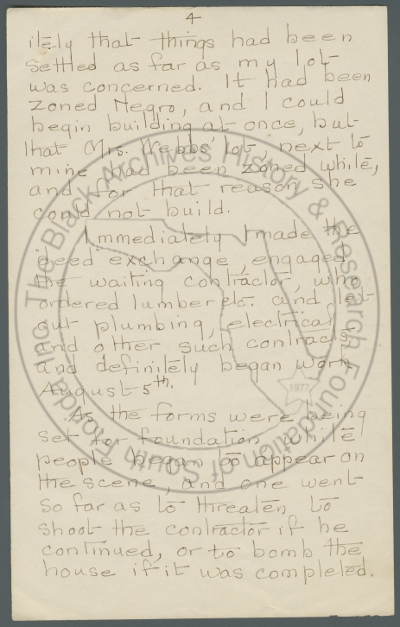 4
itely that things had been
settled as far as my lot
was concerned. It had been
zoned Negro, and I could
begin building at once, but
that Mrs. Webbs' lot next to
mine had been zoned while,
and for that reason she
could not build.
Immediately I made the
deed exchange, engaged
the waiting contractor, who
ordered lumber etc. and let
out plumbing, electrical
and other such contracts
and definitely began work
August 5th.
As the forms were being
set for foundation while
people began to appear on
the scene, and one went
so far as to threaten to
shoot the contractor if he
continued, or to bomb the
house if it was completed.
The Black Archives History & Research Foundation of South Florida Inc.
1977